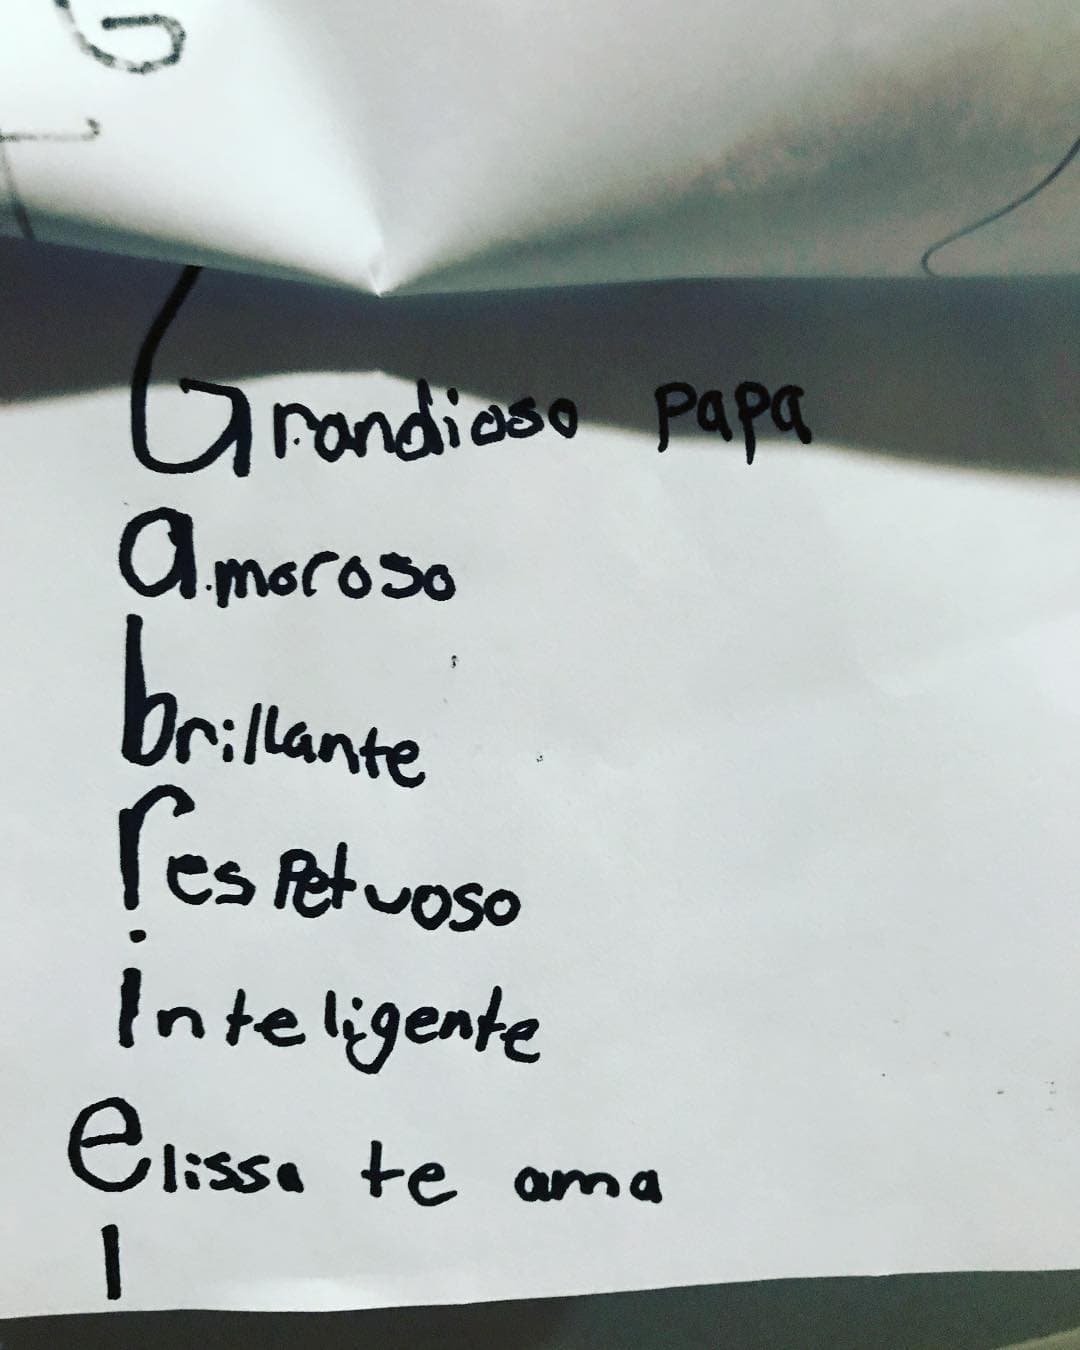 G
Grandioso papa
amoroso
brillante
respetuoso
inteligente
elissa te ama
l